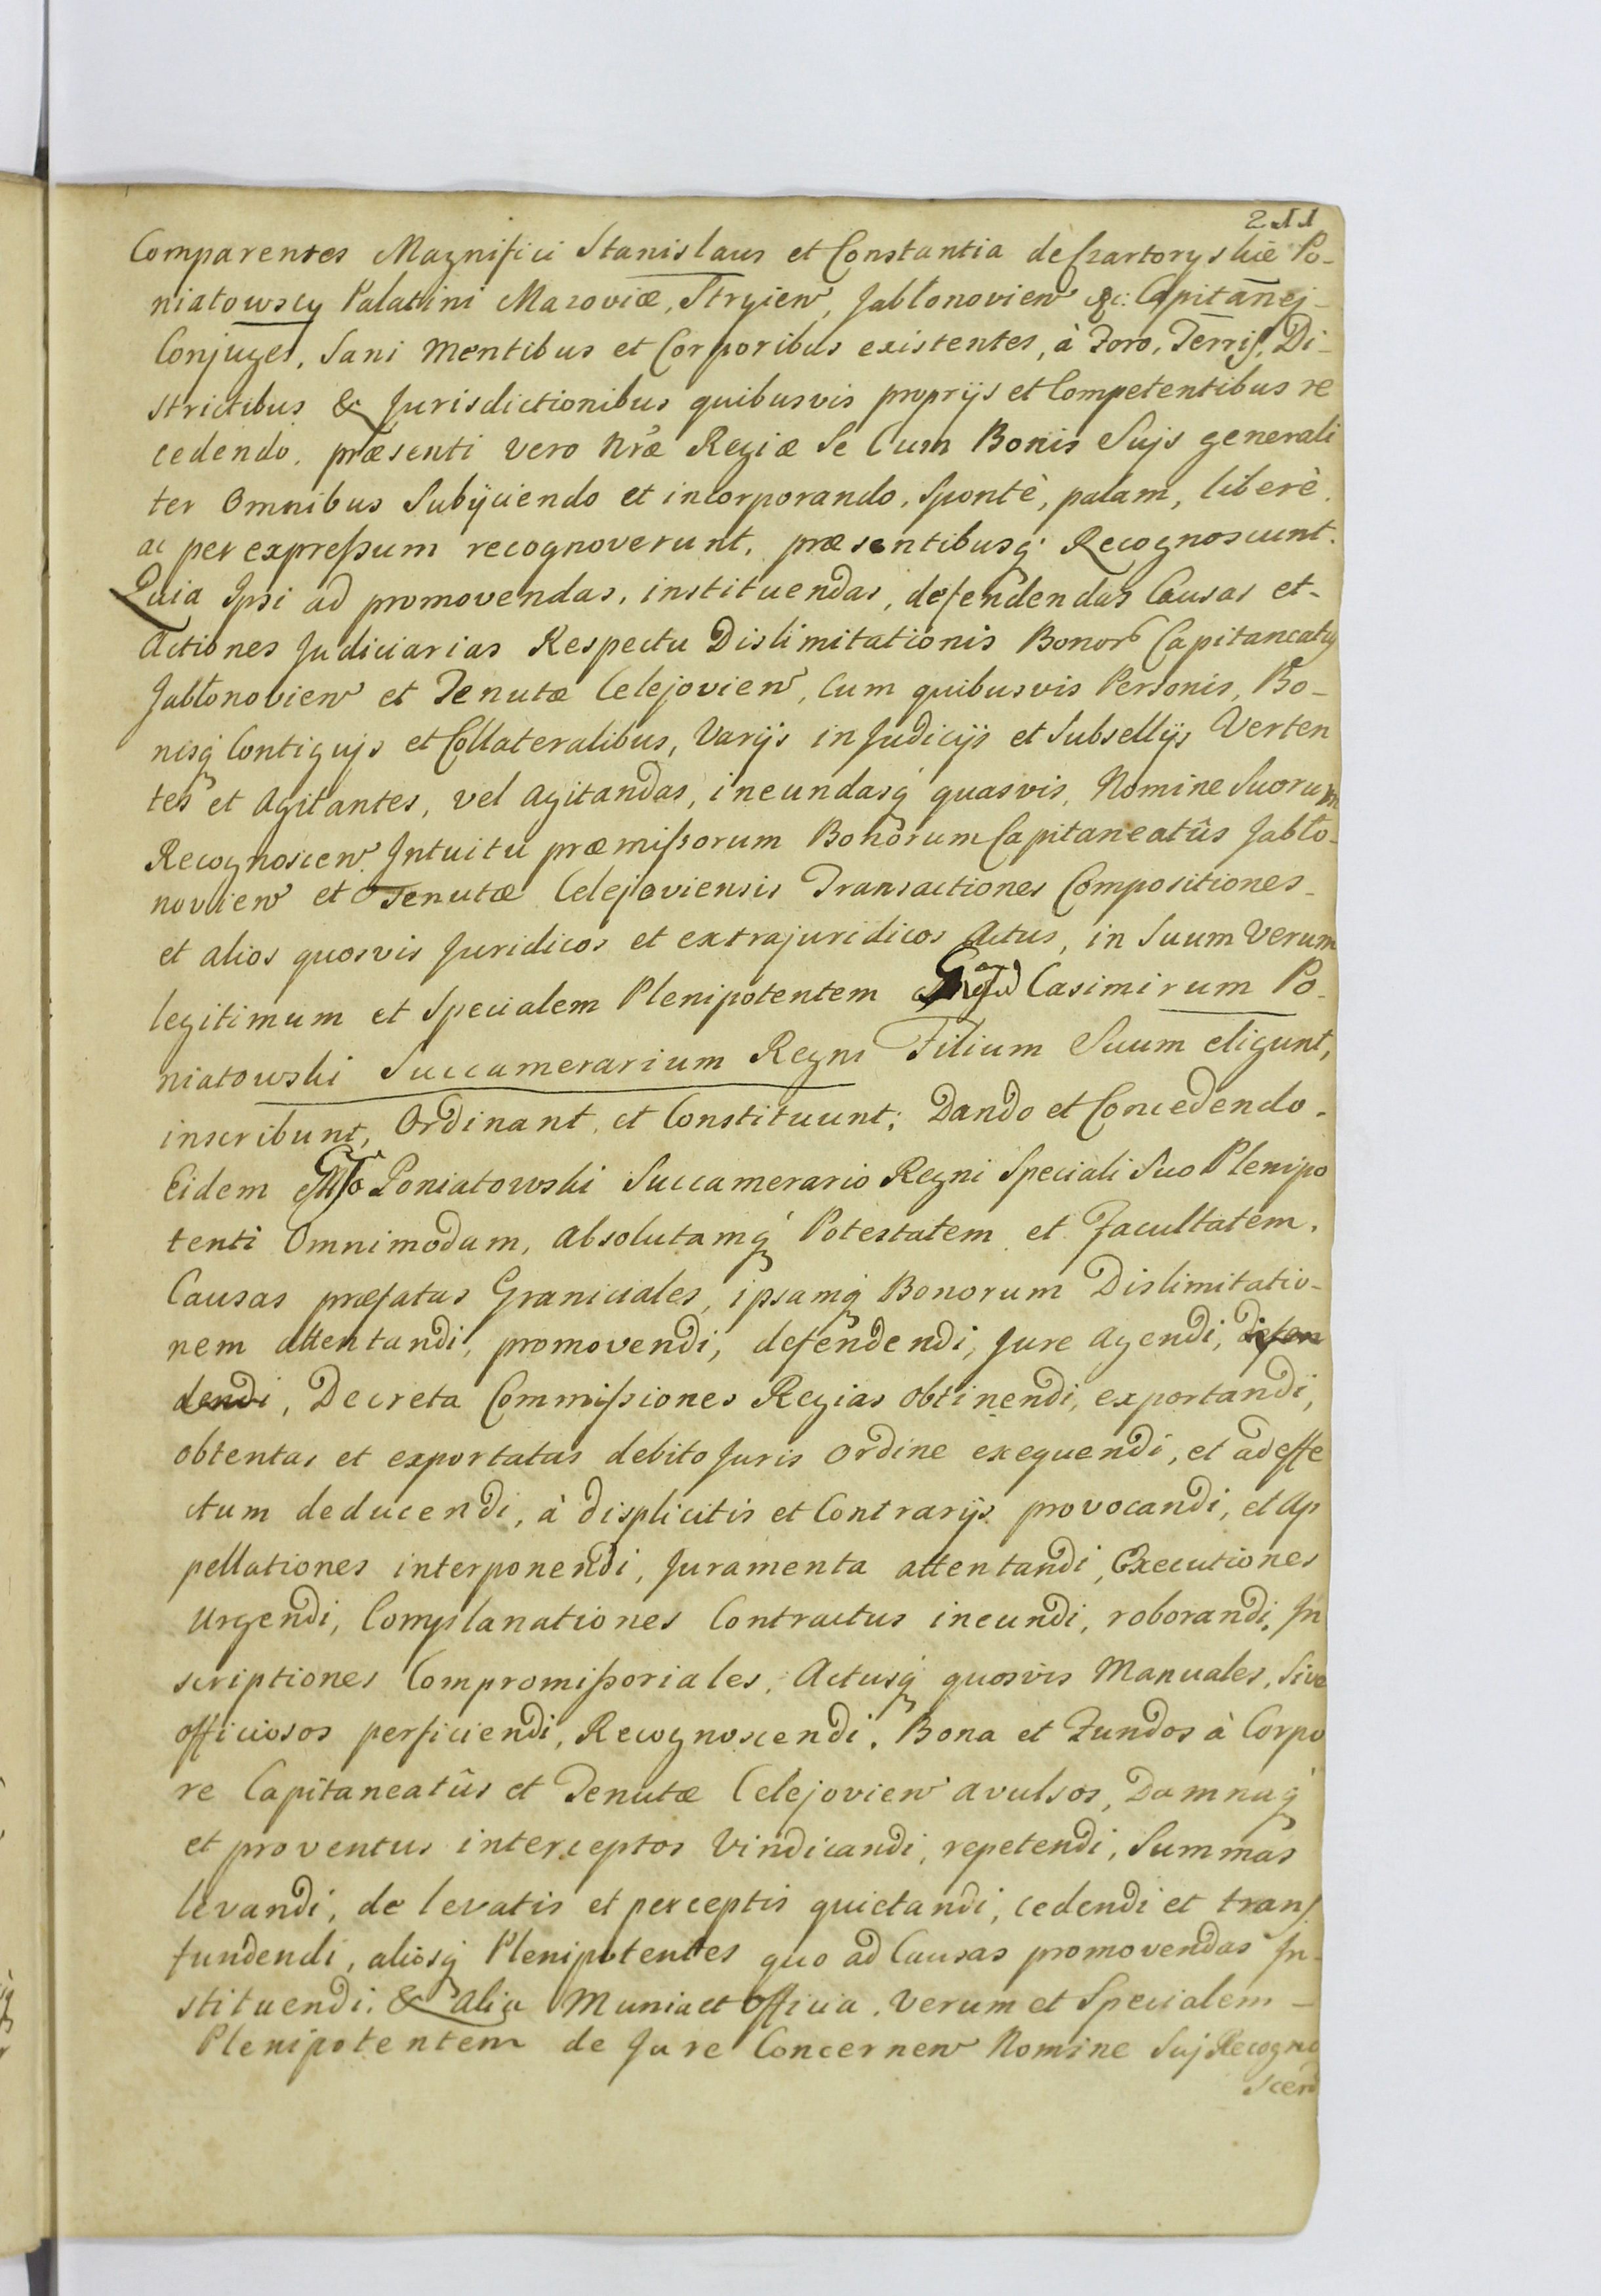 211
Comparentes Magnifici Stanislaus et Constantia de Czartoryskie Po-
niatowscy Palatini Mazoviæ, Stryien, Jabłonovien &c: Capitanej-
Conjuges, Sani Mentibus et Corporibus existentes, à Foro, Terris, Di-
strictibus & Jurisdictionibus quibusvis proprijs et Competentibus re
cedendo, præsenti vero Nræ Regiæ Se Cum Bonis Sujs generali
ter Omnibus Subijciendo et incorporando, Spontè, palam, liberè,
ac per expreßum recognoverunt, præsentibusq́ Recognoscunt.
Quia Ipsi ad promovendas, instituendas, defendendas Causas et-
Actiones Judiciarias Respectu Dislimitationis Bonor Capitaneatus
Jabłonovien et Tenutæ Celejovien, Cum quibusvis Personis, Bo-
nisq́ Contigujs et Collateralibus, Varijs in Judicijs et Subsellijs Verten
tes et Agitantes, vel Agitandas, ineundasq́ quasvis, Nomine Suorum
Recognoscen Intuitu præmißorum Bonorum Capitaneatûs Jabło-
novien et Tenutæ Celejoviensis Transactiones Compositiones-
et alios quosvis Juridicos et extrajuridicos Actus, in Suum Verum
legitimum et Specialem Plenipotentem Casimirum Po-
niatowski Succamerarium Regni Filium Suum eligunt,
inscribunt, Ordinant, et Constituunt; Dando et Concedendo.
Eidem Poniatowski Succamerario Regni Speciali Suo Plenipo
tenti Omnimodam, Absolutamq́ Potestatem et Facultatem,
Causas præfatas Graniciales, ipsamq́ Bonorum Dislimitatio-
nem attentandi, promovendi, defendendi, Jure Agendi, defen
dendi, Decreta Commißiones Regias Obtinendi, exportandi,
Obtentas et exportatas debito Juris Ordine exequendi, et ad effe
ctum deducendi, à displicitis et Contrarijs provocandi, et Ap
pellationes interponendi, Juramenta attentandi, Executiones
Urgendi, Complanationes Contractus ineundi, roborandi, In
scriptiones Compromißoriales, Actusq́ quosvis Manuales, Sive
officiosos perficiendi, Recognoscendi, Bona et Fundos à Corpo
re Capitaneatûs et Tenutæ Celejovien avulsos, Damnaq́
et proventus interceptos Vindicandi, repetendi, Summas
levandi, de levatis et perceptis quietandi, cedendi et trans
fundendi, aliosq́ Plenipotentes quo ad Causas promovendas In-
stituendi, & Alia Munia et Officia, Verum et Specialem-
Plenipotentem de Jure Concernen Nomine Suj Recogno
scen